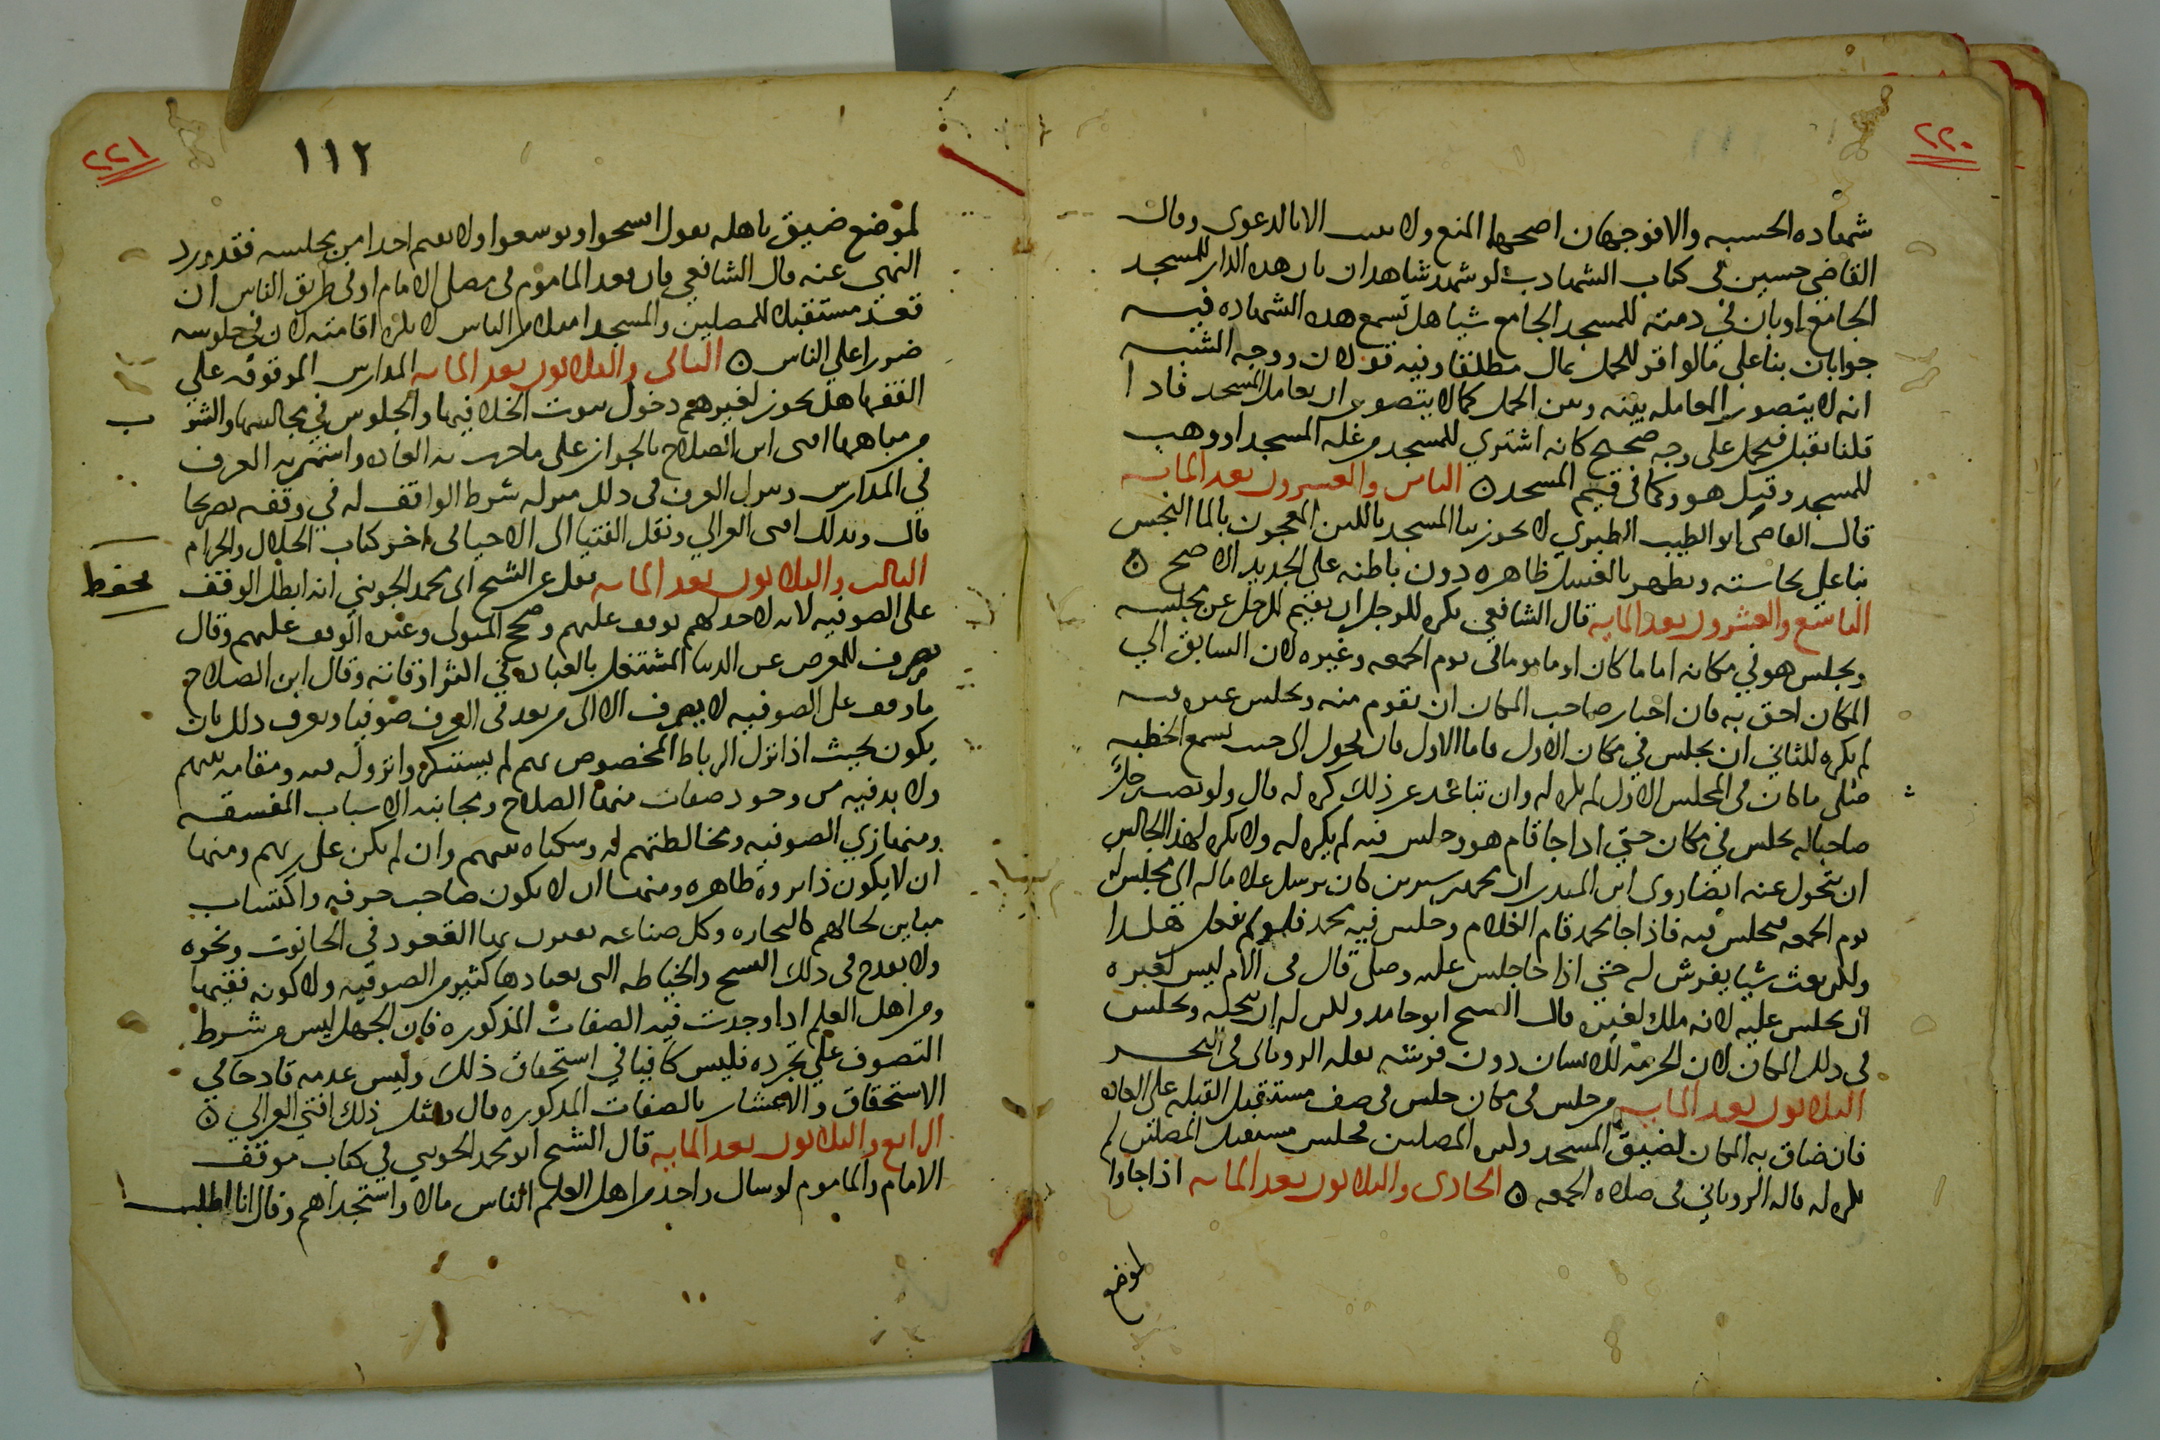 ٢٢٠
شهاده الحسبه والا فوجهان اصحهما المنع ولا تثبت الا بالدعوى وقال
القاضي حسين في كتاب الشهادات لو شهد شاهدان بان هذه الدار للمسجد
الجامع او بان في ذمته للمسجد الجامع شيا هل تسمع هذه الشهاده فيه
جوابان بنا على مالو اقر للحمل بمال مطلقا وفيه قولان ووجه الشبه
انه لا يتصور المعامله بينه وبين الحمل كما لا يتصور ان يعامل المسجد فاذا
قلنا يقبل فيحمل على وجه صحيح كانه اشترى للمسجد من غله المسجد او وهب
للمسجد وقبل هو وكما في قيم المسجد ه الثامن والعشرون بعد المايه
قال القاضي ابو الطيب الطبري لا يجوز بنا المسجد باللبن المعجون بالما النجس
بنا على نجاسته ويطهر بالغسل ظاهره دون باطنه على الجديد الاصح ه
التاسع والعشرون بعد المايه قال الشافعي يكره للرجل ان يقيم الرجل عن مجلسه
ويجلس هو في مكانه اماما كان او ماموما في يوم الجمعه وغيره لان السابق الي
المكان احق به فان اختار صاحب المكان ان يقوم منه ويجلس غيره فيه
لم يكره للثاني ان يجلس في مكان الاول فاما الاول فان تحول الى حيث يسمع الخطبه
مثل ما كان في المجلس الاول لم يكره له وان تباعد عن ذلك كره له قال ولو نصب رجل
صاحبا له يجلس في مكان حتي اذا جا قام هو وجلس فيه لم يكره له ولا يكره لهذا الجالس
ان يتحول عنه ايضا روى ابن المنذر ان محمد بن سيرين كان يرسل غلاما له الى مجلس له
يوم الجمعه فيجلس فيه فاذا جا محمد قام الغلام وجلس فيه محمد فلو لم يفعل هكذا
ولكن بعث شيا يفرش له حتي اذا جا جلس عليه وصلى قال في الام ليس لغيره
ان يجلس عليه لانه ملك لغيره قال الشيخ ابو حامد ولكن له ان ينحيه ويجلس
في ذلك المكان لان الحرمه للانسان دون فرشه نقله الروياني في البحر
الثلاثون بعد المايه من جلس في مكان جلس في صف مستقبل القبله على العاده
فان ضاق به المكان لضيق المسجد وكثره المصلين فجلس مستقبل المصلين لم
يكره له قاله الروياني في صلاه الجمعه ه الحادي والثلاثون بعد المايه اذا جاوا
لموضع
٢٢١
١١٢
لموضع ضيق باهله يقول افسحوا وتوسعوا ولا يقيم احدا من مجلسه فقد ورد
النهي عنه قال الشافعي فان قعد الماموم في مصلى الامام او في طريق الناس ان
قعد مستقبل المصلين والمسجد ممتلي من الناس لا يكره اقامته لان في جلوسه
ضررا علي الناس ه الثاني والثلاثون بعد المايه المدارس الموقوفه علي
الفقها هل يجوز لغيرهم دخول بيوت الخلا فيها والجلوس في مجالسها والشرب
من مياهها افتى ابن الصلاح بالجواز على ما جرت به العاده واستمر به العرف
في المدارس وينزل العرف في ذلك منزله شرط الواقف له في وقفه تصريحا
قال وبذلك افتى الغزالي ونقل الفتيا الى الاحيا في اخر كتاب الحلال والحرام
الثالث والثلاثون بعد المايه نقل عن الشيخ ابي محمد الجويني انه ابطل الوقف
محفوظ
على الصوفيه لانه لا حد لهم يوقف عليهم وصحح المتولي وغيره الوقف عليهم وقال
يصرف للمعرض عن الدنيا المشتغل بالعباده في اكثر اوقاته وقال ابن الصلاح
ما وقف على الصوفيه لا يصرف الا الى من يعد في العرف صوفيا ويعرف ذلك بان
يكون بحيث اذا نزل الرباط المخصوص بهم لم يستنكروا نزوله به ومقامه بينهم
ولا بد فيه من وجود صفات منها الصلاح ومجانبه الاسباب المفسقه
ومنها زي الصوفيه ومخالطتهم له وسكناه بينهم وان لم يكن على زيهم ومنها
ان لا يكون ذا ثروه ظاهره ومنها ان لا يكون صاحب حرفه واكتساب
مباين لحالهم كالتجاره وكل صناعه يعتبر بها القعود في الحانوت ونحوه
ولا يقدح في ذلك النسج والخياطه التى يعتادها كثير من الصوفيه ولا كونه فقيها
ومن اهل العلم اذا وجدت فيه الصفات المذكوره فان الجهل ليس من شرط
التصوف علي تجرده فليس كافيا في استحقاق ذلك وليس عدمه قادحا في
الاستحقاق والاعتبار بالصفات المذكوره قال وبمثل ذلك افتي الغزالي ه
الرابع والثلاثون بعد المايه قال الشيخ ابو محمد الجويني في كتاب موقف
الامام والماموم لو سال واحد من اهل العلم الناس مالا واستجداهم وقال انا اطلب